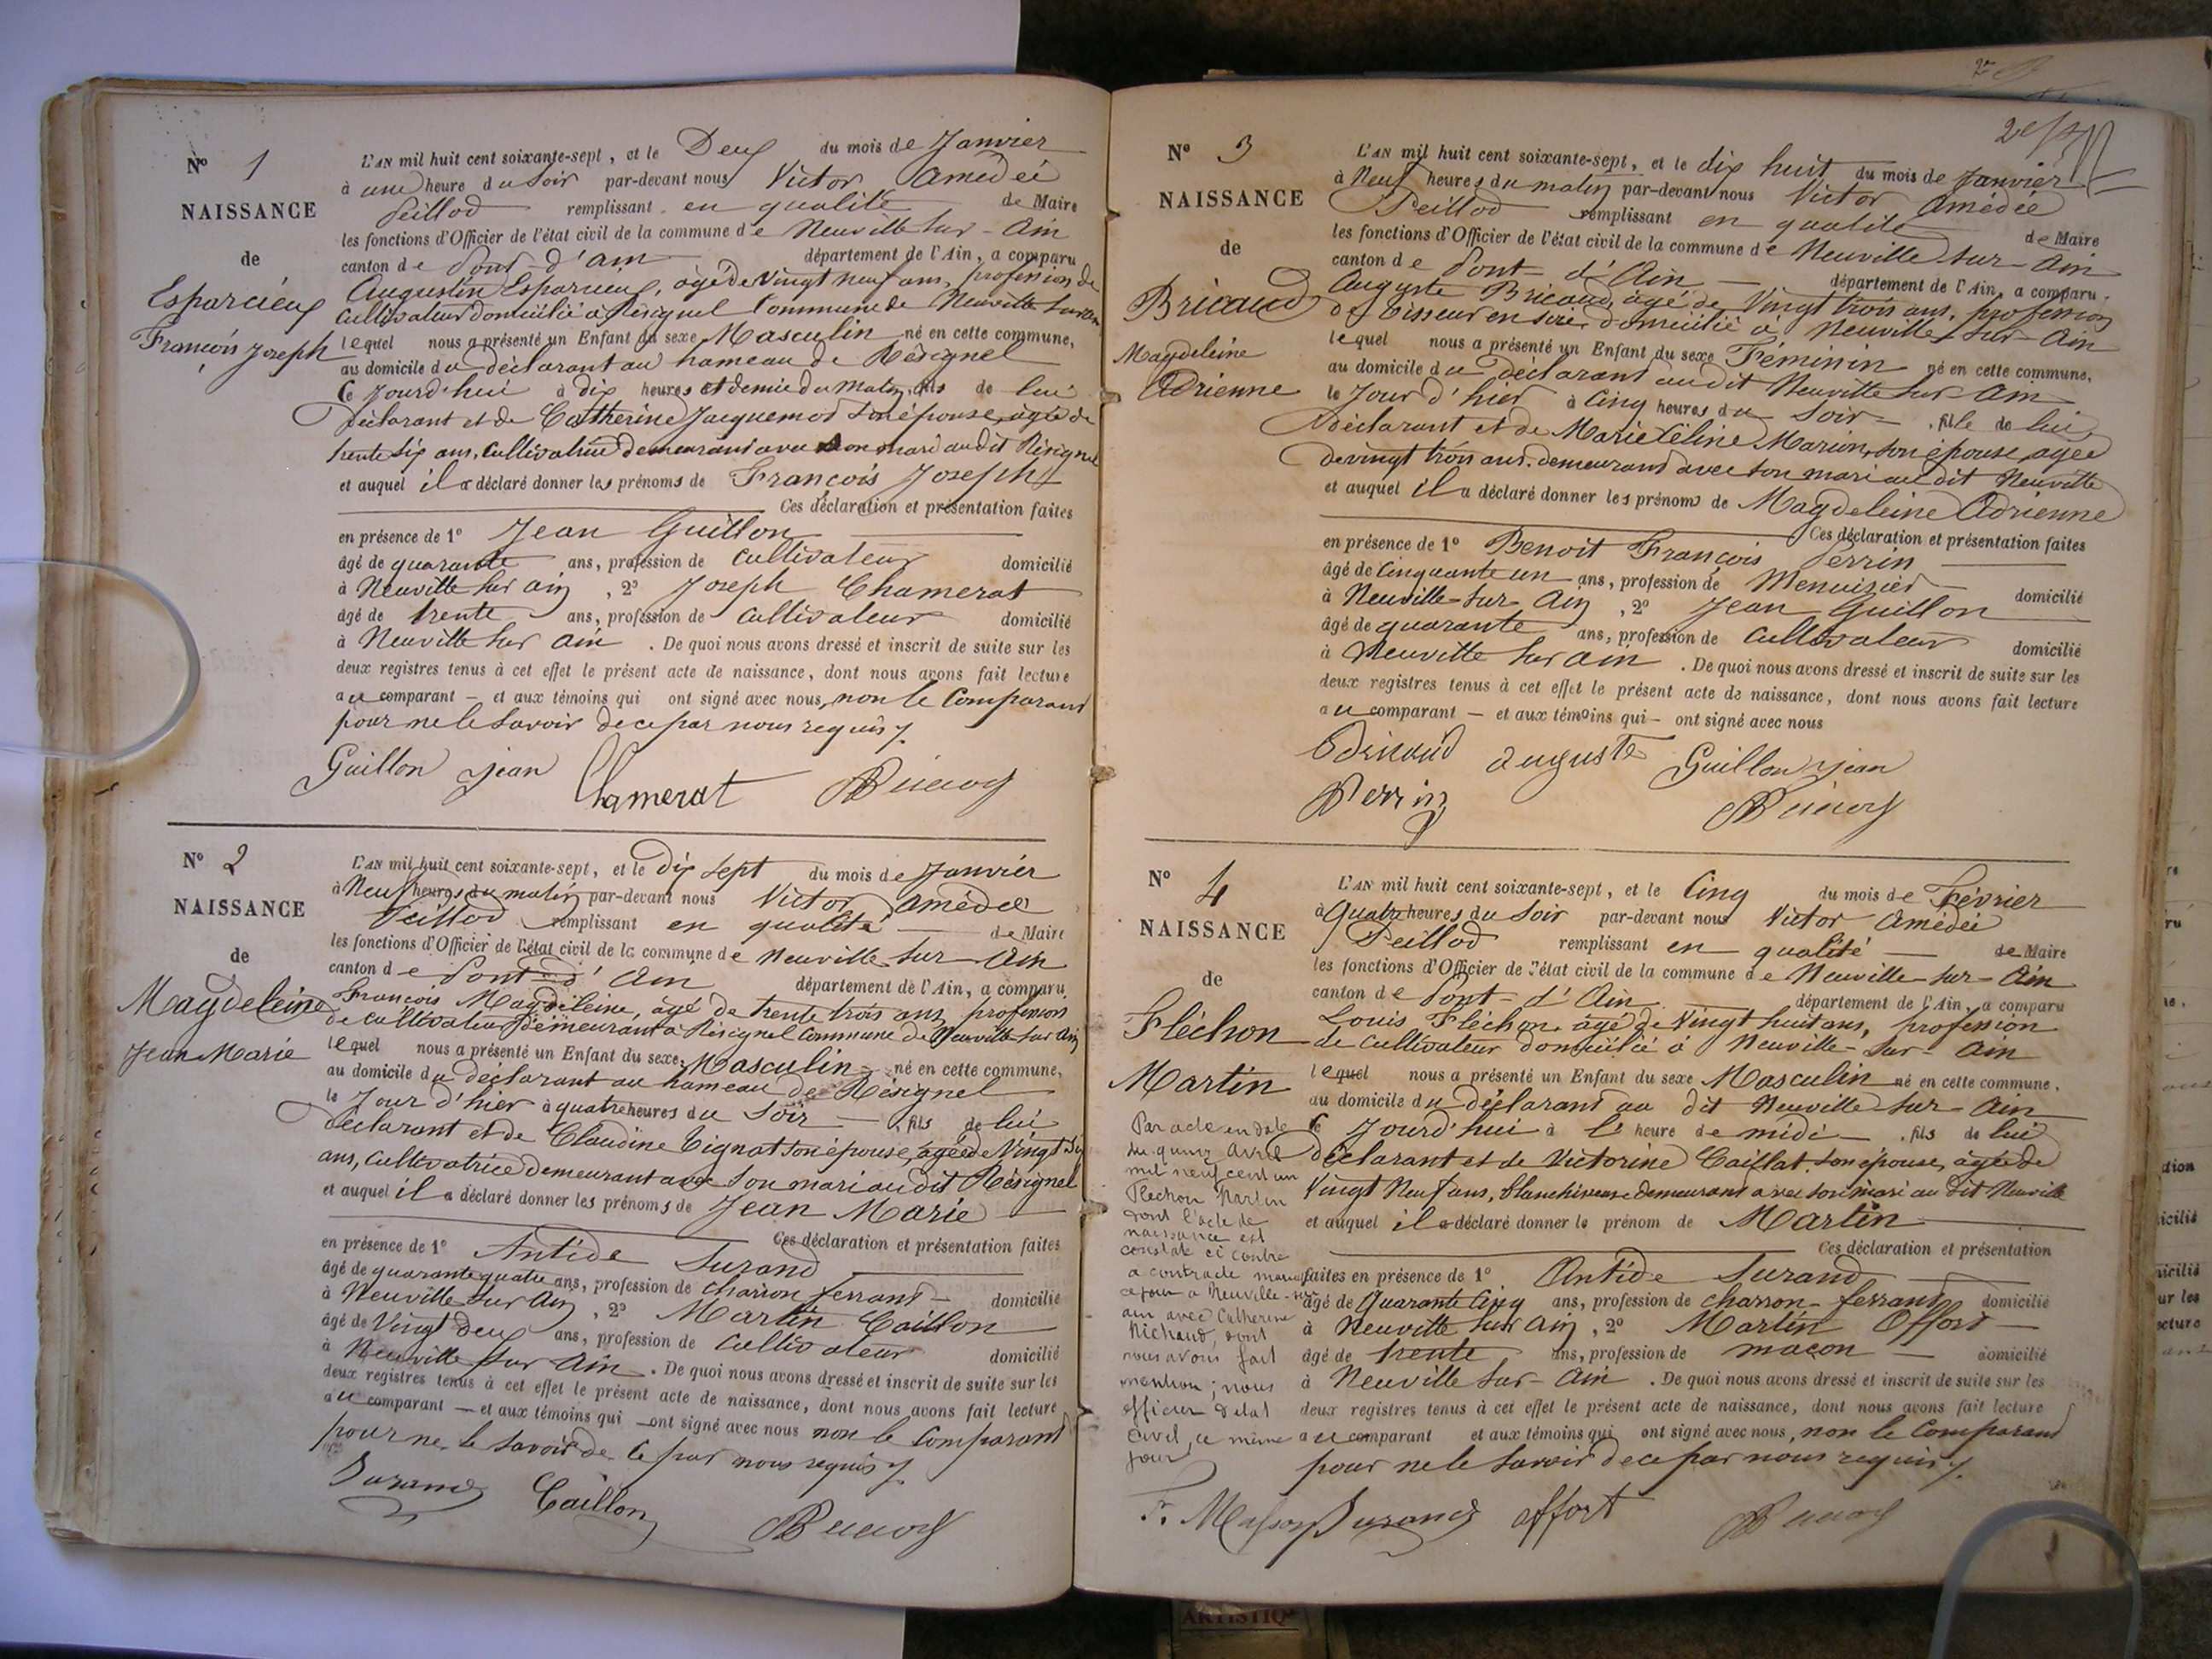 N° 1
NAISSANCE
de
Esparcieux
François Joseph
L'AN mil huit cent soixante-sept, et le Deux du mois de Janvier
à une heure du Soir par-devant nous Victor Amédée
Peillod remplissant en qualité de Maire
les fonctions d'Officier de l'état civil de la commune de Neuville sur-Ain
canton de Pont-d'Ain département de l'Ain, a comparu
Augustin Esparcieux, âgé de Vingt neuf ans, profession de
Cultivateur domicilié à Résignel Commune de Neuville sur Ain
lequel nous a présenté un Enfant du sexe Masculin né en cette commune,
au domicile du déclarant au hameau de Résignel
Ce Jourd'hui à dix heures et demie du Matin, fils de lui
Déclarant et de Catherine Jacquemod son épouse, agée de
trente six ans, Cultivatrice demeurant avec son mari audit Résignel
et auquel il a déclaré donner les prénoms de François Joseph
Ces déclaration et présentation faites
en présence de 1° Jean Guillon
âgé de quarante ans, profession de Cultivateur domicilié
à Neuville sur ain, 2° Joseph Chamerat
âgé de trente ans, profession de Cultivateur domicilié
à Neuville sur Ain. De quoi nous avons dressé et inscrit de suite sur les
deux registres tenus à cet effet le présent acte de naissance, dont nous avons fait lecture
au comparant — et aux témoins qui ont signé avec nous, non le Comparant
pour ne le Savoir de ce par nous requis
Guillon jean Chamerat
N° 2
NAISSANCE
de
Magdeleine
Jean Marie
L'AN mil huit cent soixante-sept, et le Dix Sept du mois de Janvier
à Neuf heures du matin par-devant nous Victor Amédée
Peillod remplissant en qualité de Maire
les fonctions d'Officier de l'état civil de la commune de Neuville sur-Ain
canton de Pont d'Ain département de l'Ain, a comparu
François Magdeleine, âgé de trente trois ans, profession
de cultivateur Demeurant à Résignel Commune de Neuville sur Ain
lequel nous a présenté un Enfant du sexe Masculin né en cette commune,
au domicile du déclarant au hameau de Résignel
le Jour d'hier à quatre heures du Soir fils de lui
déclarant et de Claudine Tignat son épouse, âgée de Vingt Six
ans, Cultivatrice demeurant avec son mari au dit Résignel
et auquel il a déclaré donner les prénoms de Jean Marie
Ces déclaration et présentation faites
en présence de 1° Antide Surand
âgé de quarante quatre ans, profession de charron ferrant domicilié
à Neuville sur Ain, 2° Martin Caillon
âgé de Vingt deux ans, profession de Cultivateur domicilié
à Neuville sur Ain. De quoi nous avons dressé et inscrit de suite sur les
deux registres tenus à cet effet le présent acte de naissance, dont nous avons fait lecture
au comparant — et aux témoins qui ont signé avec nous non le Comparant
pour ne le Savoir de ce par nous requis
Surand Caillon
N° 3
NAISSANCE
de
Bricaud
Magdeleine
Adrienne
L'AN mil huit cent soixante-sept, et le dix huit du mois de Janvier
à Neuf heures du matin par-devant nous Victor Amédée
Peillod remplissant en qualité de Maire
les fonctions d'Officier de l'état civil de la commune de Neuville sur-Ain
canton de Pont-d'Ain département de l'Ain, a comparu
Auguste Bricaud, âgé de Vingt trois ans, profession
de Tisseur en soie domicilié à Neuville sur-Ain
lequel nous a présenté un Enfant du sexe Féminin né en cette commune,
au domicile du Déclarant audit Neuville sur Ain
le Jour d'hier à Cinq heures du Soir fille de lui
déclarant et de Marie Céline Marion, son épouse, agée
de vingt trois ans, demeurant avec son mari au dit Neuville
et auquel il a déclaré donner les prénoms de Magdeleine Adrienne
Ces déclaration et présentation faites
en présence de 1° Benoit François Perrin
âgé de Cinquante un ans, profession de Menuisier domicilié
à Neuville-sur Ain, 2° Jean Guillon
âgé de quarante ans, profession de Cultivateur domicilié
à Neuville sur ain. De quoi nous avons dressé et inscrit de suite sur les
deux registres tenus à cet effet le présent acte de naissance, dont nous avons fait lecture
au comparant — et aux témoins qui ont signé avec nous
Bricaud auguste Guillon jean
Perrin
N° 4
NAISSANCE
de
Fléchon
Martin
Par acte en date
du quinze Avril
mil neuf cent un
Flechon Martin
dont l'acte de
naissance est
constaté ci contre
a contracté mariage
ce jour à Neuville-sur
ain avec Catherine
Richaud, dont
nous avons fait
mention; nous
officier d'état
Civil, ce même
jour
L'AN mil huit cent soixante-sept, et le Cinq du mois de Février
à Quatre heures du Soir par-devant nous Victor Amédée
Peillod remplissant en qualité de Maire
les fonctions d'Officier de l'état civil de la commune de Neuville-sur-Ain
canton de Pont-d'Ain département de l'Ain, a comparu
Louis Fléchon âgé de Vingt huit ans, profession
de Cultivateur domicilié à Neuville-sur-Ain
lequel nous a présenté un Enfant du sexe Masculin né en cette commune,
au domicile du déclarant au dit Neuville sur-Ain
Ce Jourd'hui à l' heure de midi fils de lui
déclarant et de Victorine Caillat son épouse, âgée de
Vingt Neuf ans, blanchiseuse demeurant avec son mari au dit Neuville
et auquel il a déclaré donner le prénom de Martin
Ces déclaration et présentation
faites en présence de 1° Antide Surand
âgé de Quarante Cinq ans, profession de charron-ferrant domicilié
à Neuville sur Ain, 2° Martin Offort
âgé de trente ans, profession de maçon domicilié
à Neuville sur-Ain. De quoi nous avons dressé et inscrit de suite sur les
deux registres tenus à cet effet le présent acte de naissance, dont nous avons fait lecture
au comparant et aux témoins qui ont signé avec nous, non le Comparant
pour ne le Savoir de ce par nous requis
Surand offort
ARTISTIQ